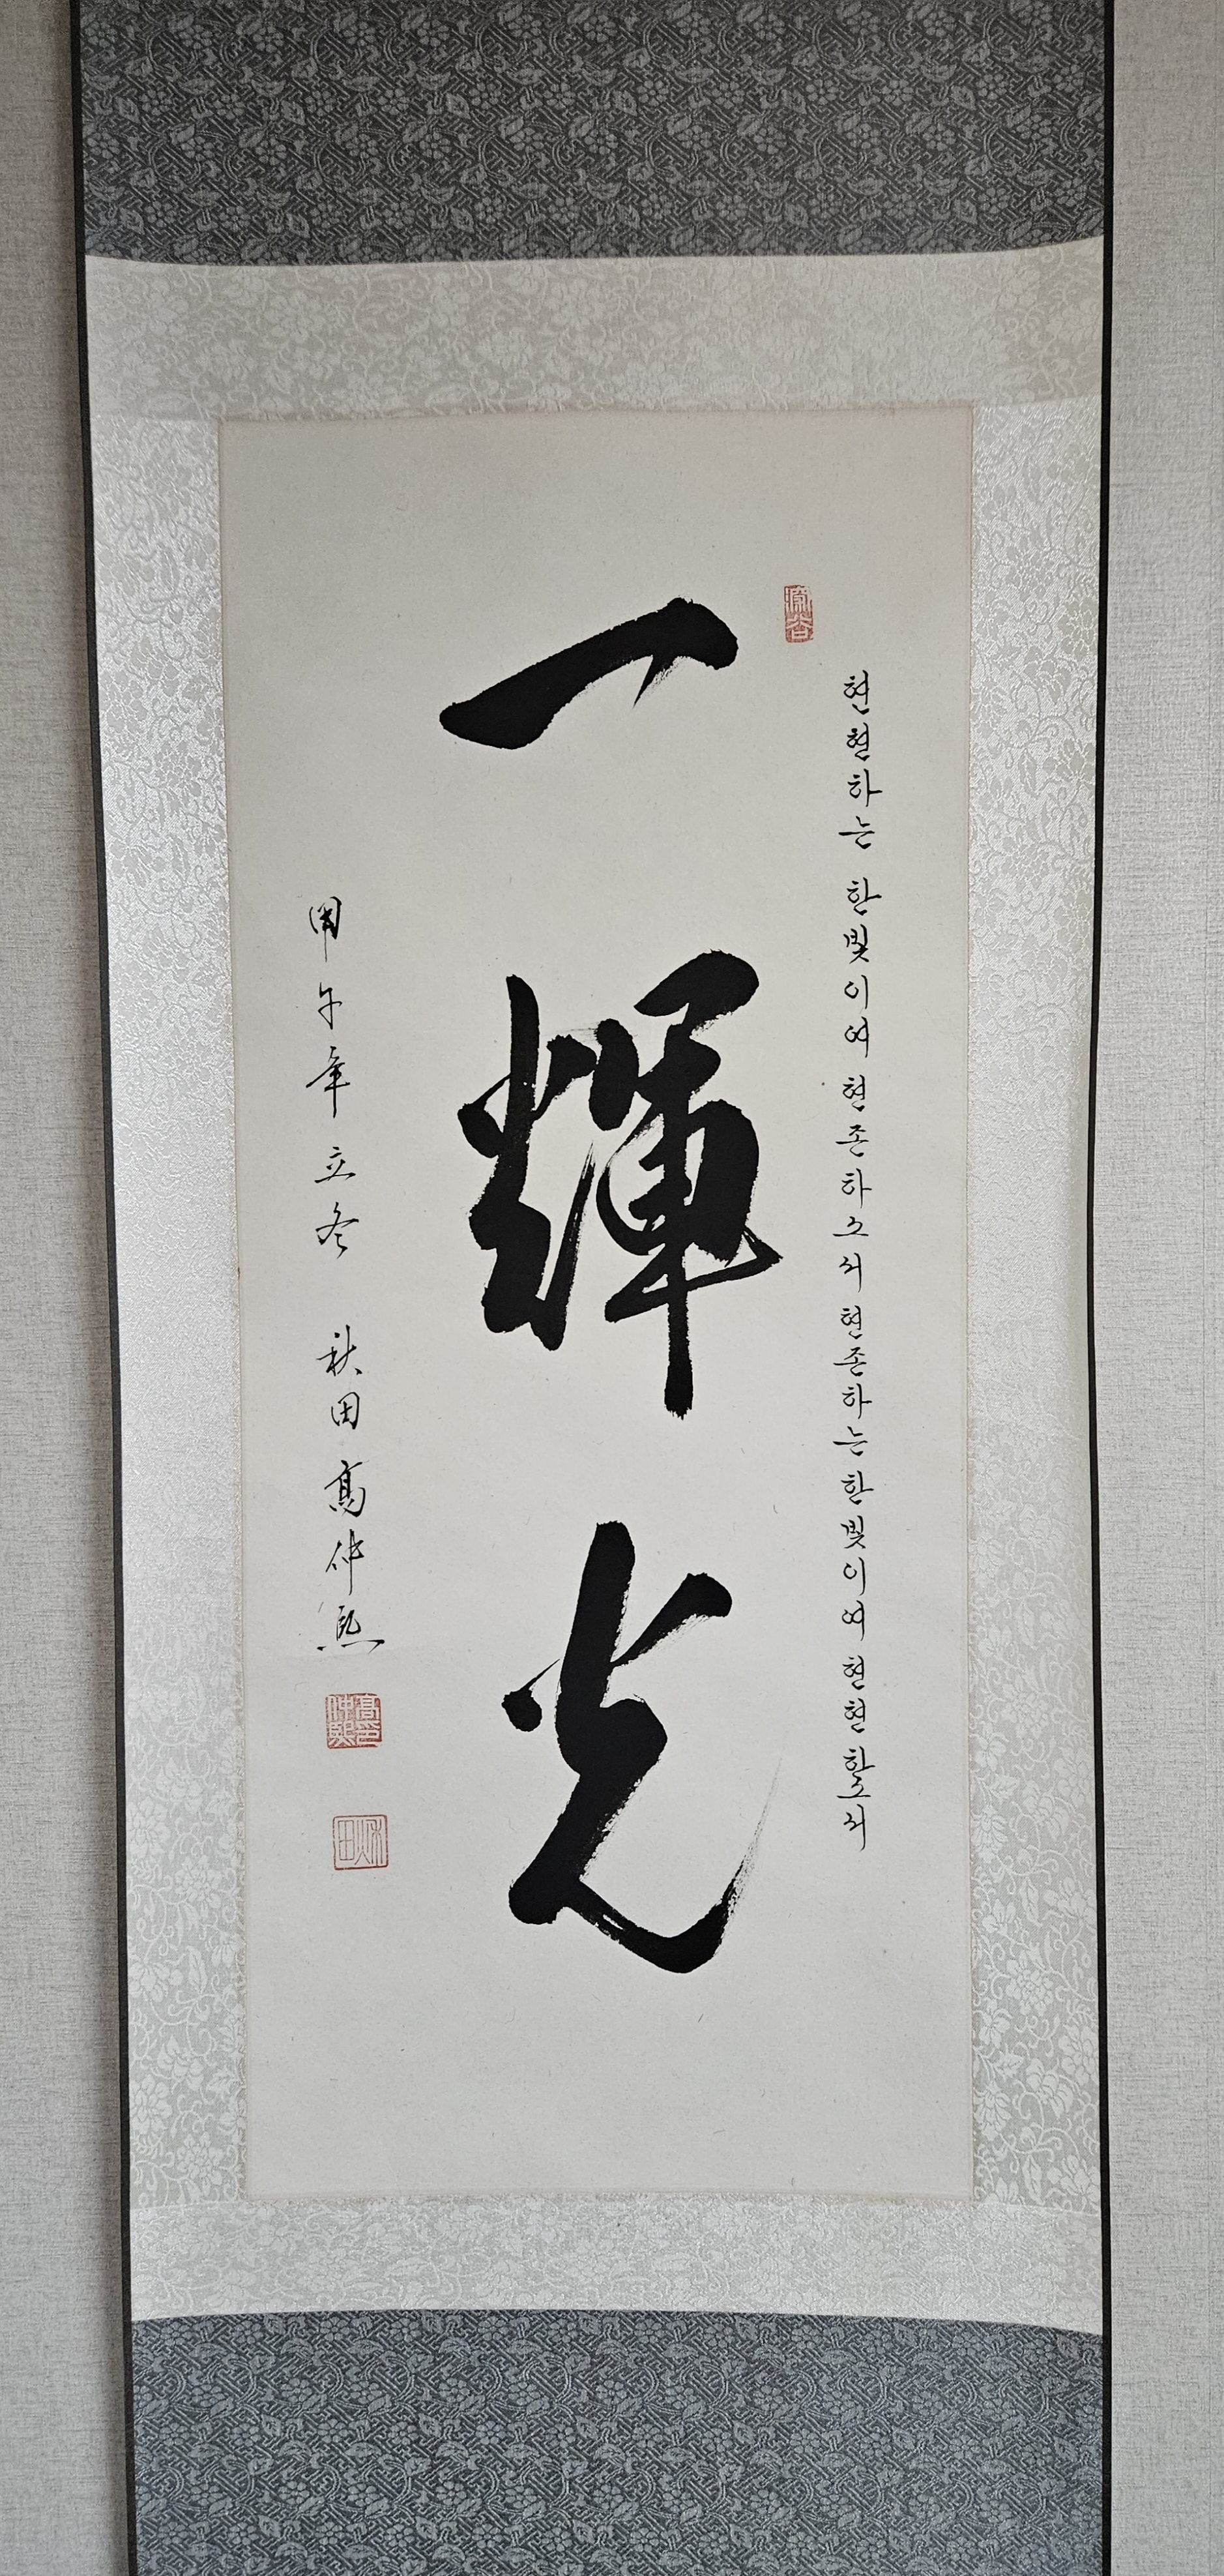 현현하는 한빛이여 현존하소서 현존하는 한빛이여 현현하소서
一輝光
甲午年立冬 秋田 高仲熙
高仲熙印
秋田